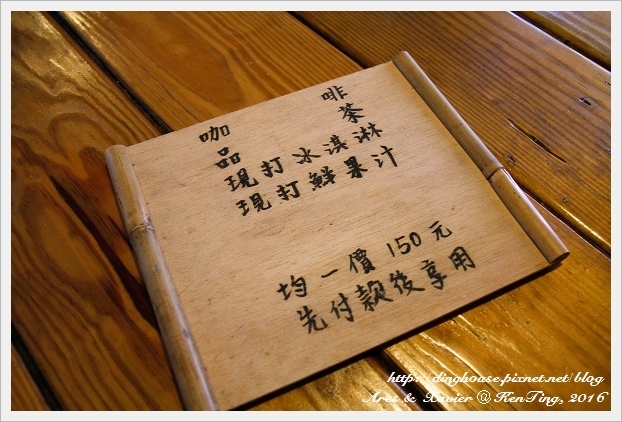 咖啡
品茶
現打冰淇淋
現打鮮果汁
均一價150元
先付款後享用
http://dinghouse.pixnet.net/blog
Ares & Xavier @ KenTing, 2016